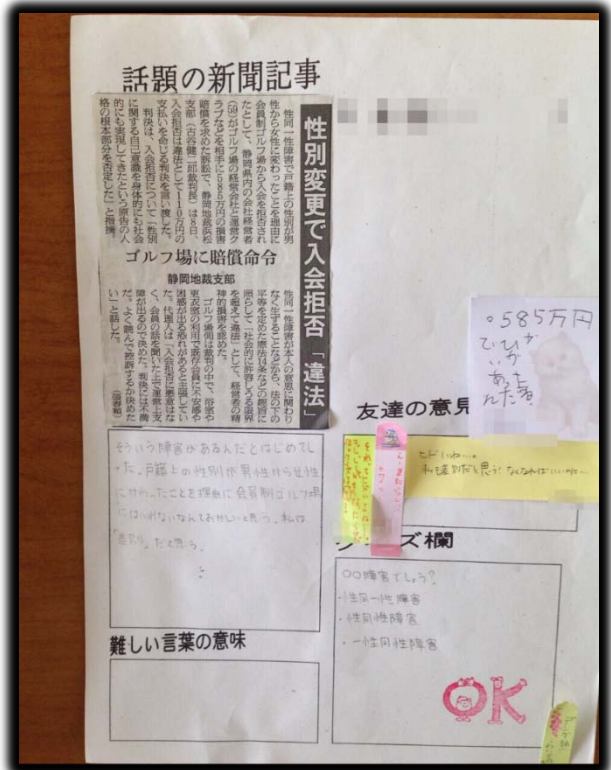 話題の新聞記事
性別変更で入会拒否「違法」
ゴルフ場に賠償命令
静岡地裁支部
性同一性障害で戸籍上の性別が男
性から女性に変わったことを理由に
会員制ゴルフ場から入会を拒否され
たとして、静岡県内の会社経営者
(59)がゴルフ場の経営会社と運営ク
ラブなどを相手に585万円の損害
賠償を求めた訴訟で、静岡地裁浜松
支部(古谷健二郎裁判長)は8日、
入会拒否は違法として110万円の
支払いを命じる判決を言い渡した。
判決は、入会拒否について「性別
に関する自己意識を身体的にも社会
的にも実現してきたという原告の人
格の根本部分を否定した」と指摘。
性同一性障害が本人の意思に関わり
なく生ずることなどから、法の下の
平等を定めた憲法14条などの趣旨に
照らして「社会的に許容しうる限界
を超えて違法」として、経営者の精
神的損害を認めた。
ゴルフ場側は裁判の中で、浴室や
更衣室の利用で既存会員に不安感や
困惑感が出る恐れがあると主張してい
た。代理人は「入会拒否に悪意はな
く、会員の話を聞いた上で運営上支
障が出るので決めた。判決には不満
だ。よく読んで控訴するか決めた
い」と話した。
そういう障害があるんだとはじめてし
った。戸籍上の性別が男性から女性
にかわったことを理由に会員制ゴルフ場
にはいれないなんておかしいと思う。私は
「差別」だと思う。
難しい言葉の意味
585万円
友達の意見
ヒドいね…。
私も差別だと思う!
ズ欄
○○障害でしょう?
・性同一性障害
・性同性障害
・一性同性障害
OK